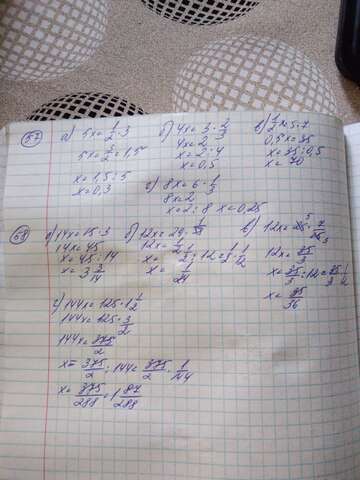 57
а) 5x = 1/2 · 3
5x = 3/2 = 1,5
x = 1,5 : 5
x = 0,3
б) 4x = 3 · 2/3
4x = 2
x = 2 : 4
x = 0,5
в) 1/2 x = 5 · 7
0,5x = 35
x = 35 : 0,5
x = 70
г) 8x = 6 · 1/3
8x = 2
x = 2 : 8 x = 0,25
58
а) 14x = 15 · 3
14x = 45
x = 45 : 14
x = 3 3/14
б)
12x = 1/2
x = 1/2 : 12 = 1/2 · 1/12
x = 1/24
в)
12x = 35/3
x = 35/3 : 12 = 35/3 · 1/12
x = 35/36
г) 144x = 125 · 1 1/2
144x = 125 · 3/2
144x = 375/2
x = 375/2 : 144 = 375/2 · 1/144
x = 375/288 = 1 87/288